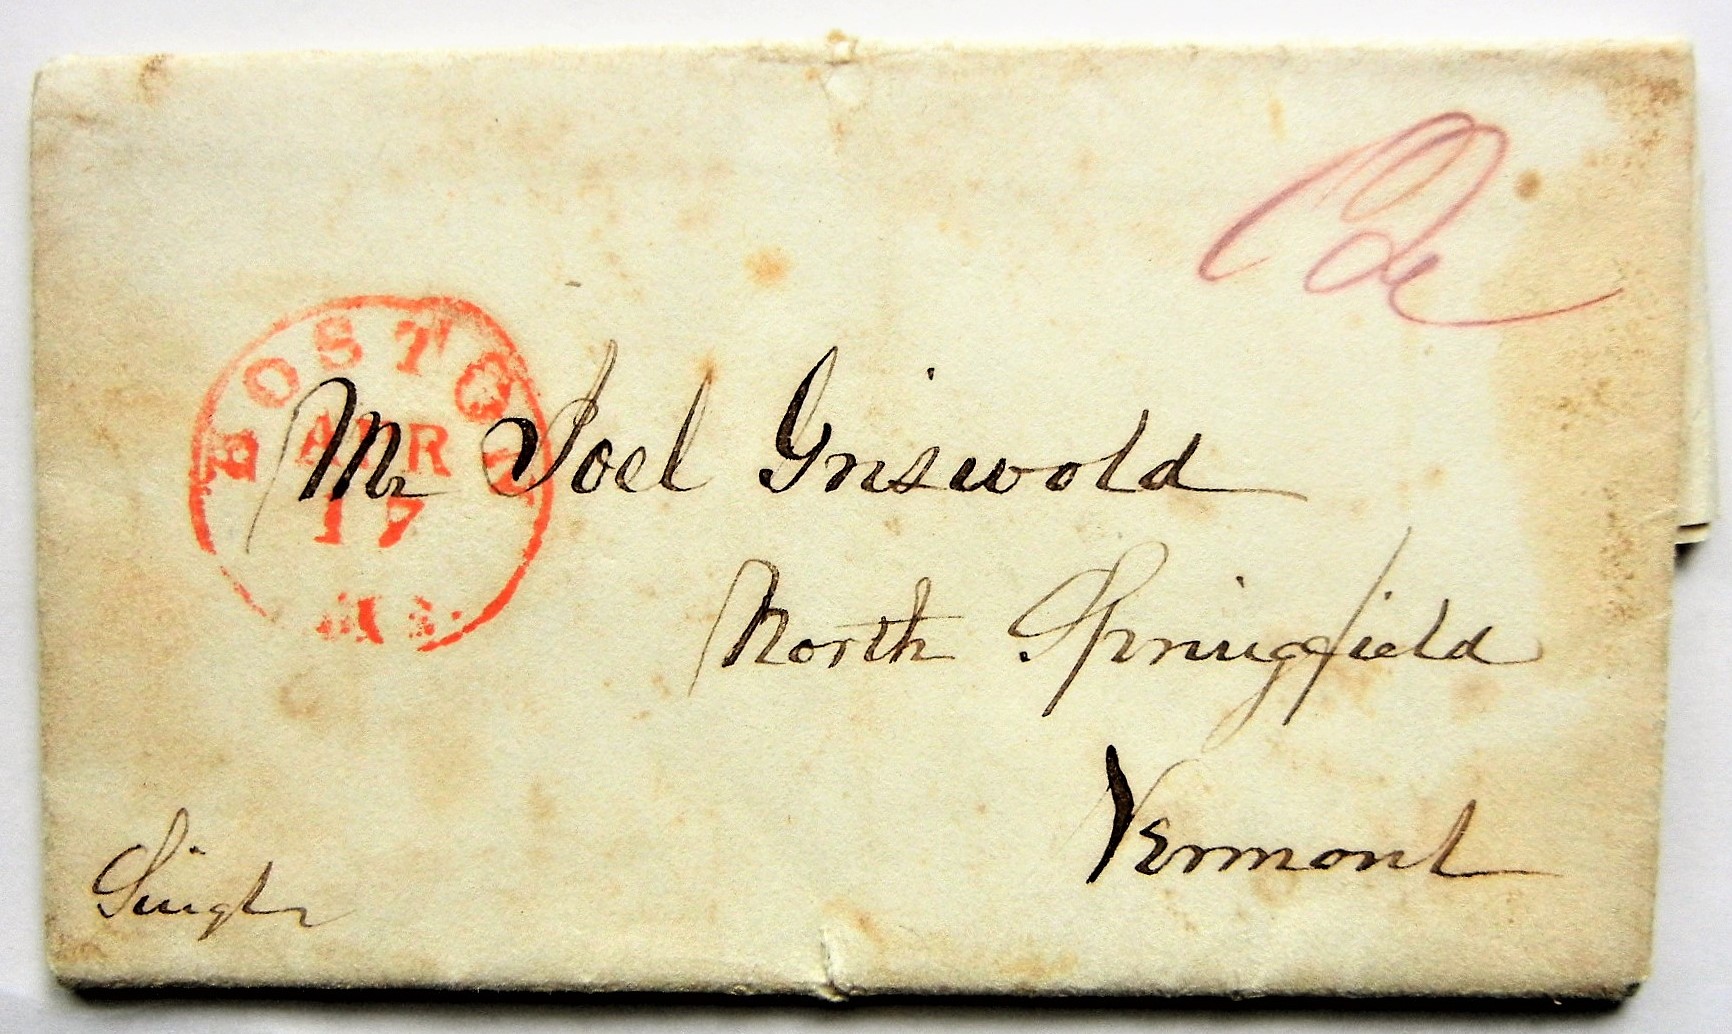 BOSTON
APR
17
MS.
Mr Joel Griswold
North Springfield
Vermont
Single